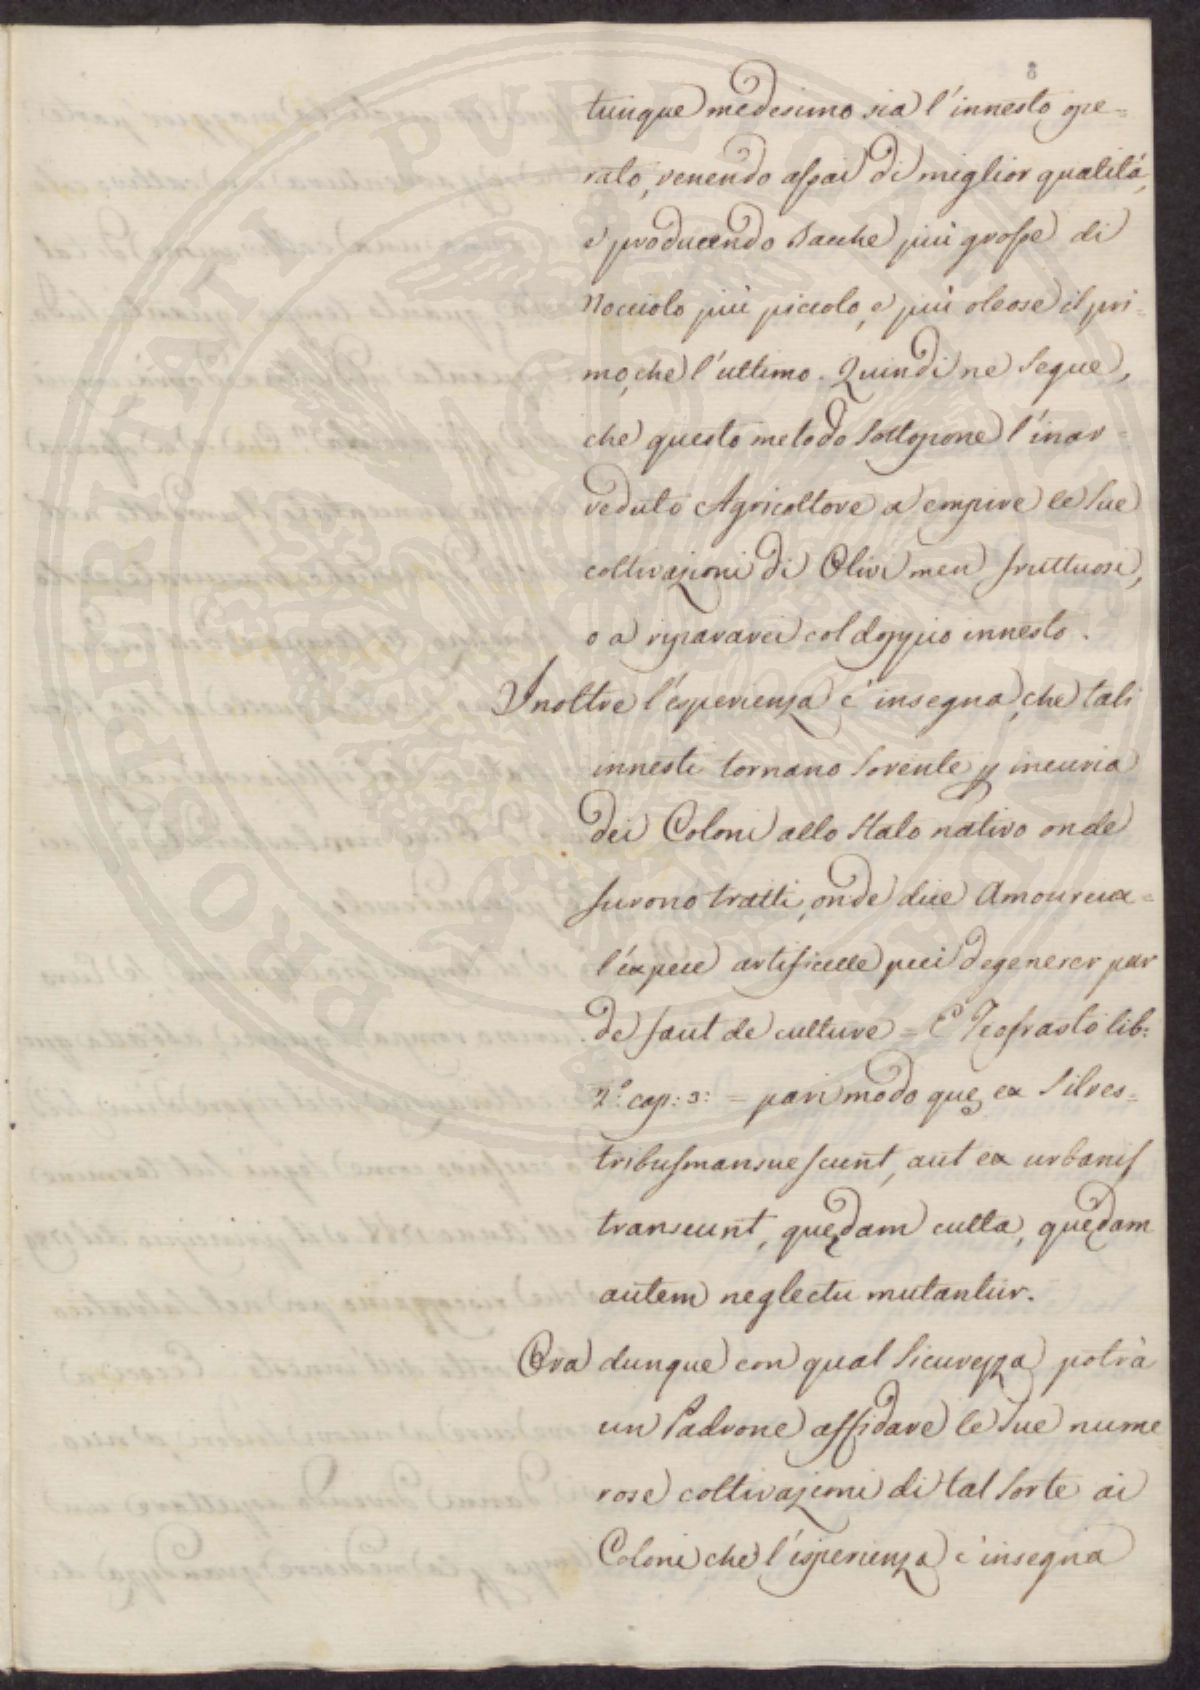 8
tunque medesimo sia l'innesto ope=
rato, venendo assai di miglior qualità,
e producendo bacche più grosse di
Nocciolo più piccolo, e più oleose il pri=
mo, che l'ultimo. Quindi ne segue,
che questo metodo sottopone l'inav=
veduto Agricoltore a empire le sue
coltivazioni di Olivi men fruttuosi,
o a ripararci col doppio innesto.
Inoltre l'esperienza c'insegna, che tali
innesti tornano sovente p incuria
dei Coloni allo stato nativo onde
furono tratti, onde dice Amoureux=
l'éxpece artificielle peut degenerer par
de faut de culture = E Teofrasto lib:
2.º cap: 3: = pari modo quę ex silves=
tribus mansuescunt, aut ex urbanis
transeunt, quędam culta, quędam
autem neglectu mutantur.
Ora dunque con qual sicurezza potrà
un Padrone affidare le sue nume
rose coltivazioni di tal sorte ai
Coloni che l'esperienza c'insegna
PROSPERITATI PVBLICAE AVGENDAE